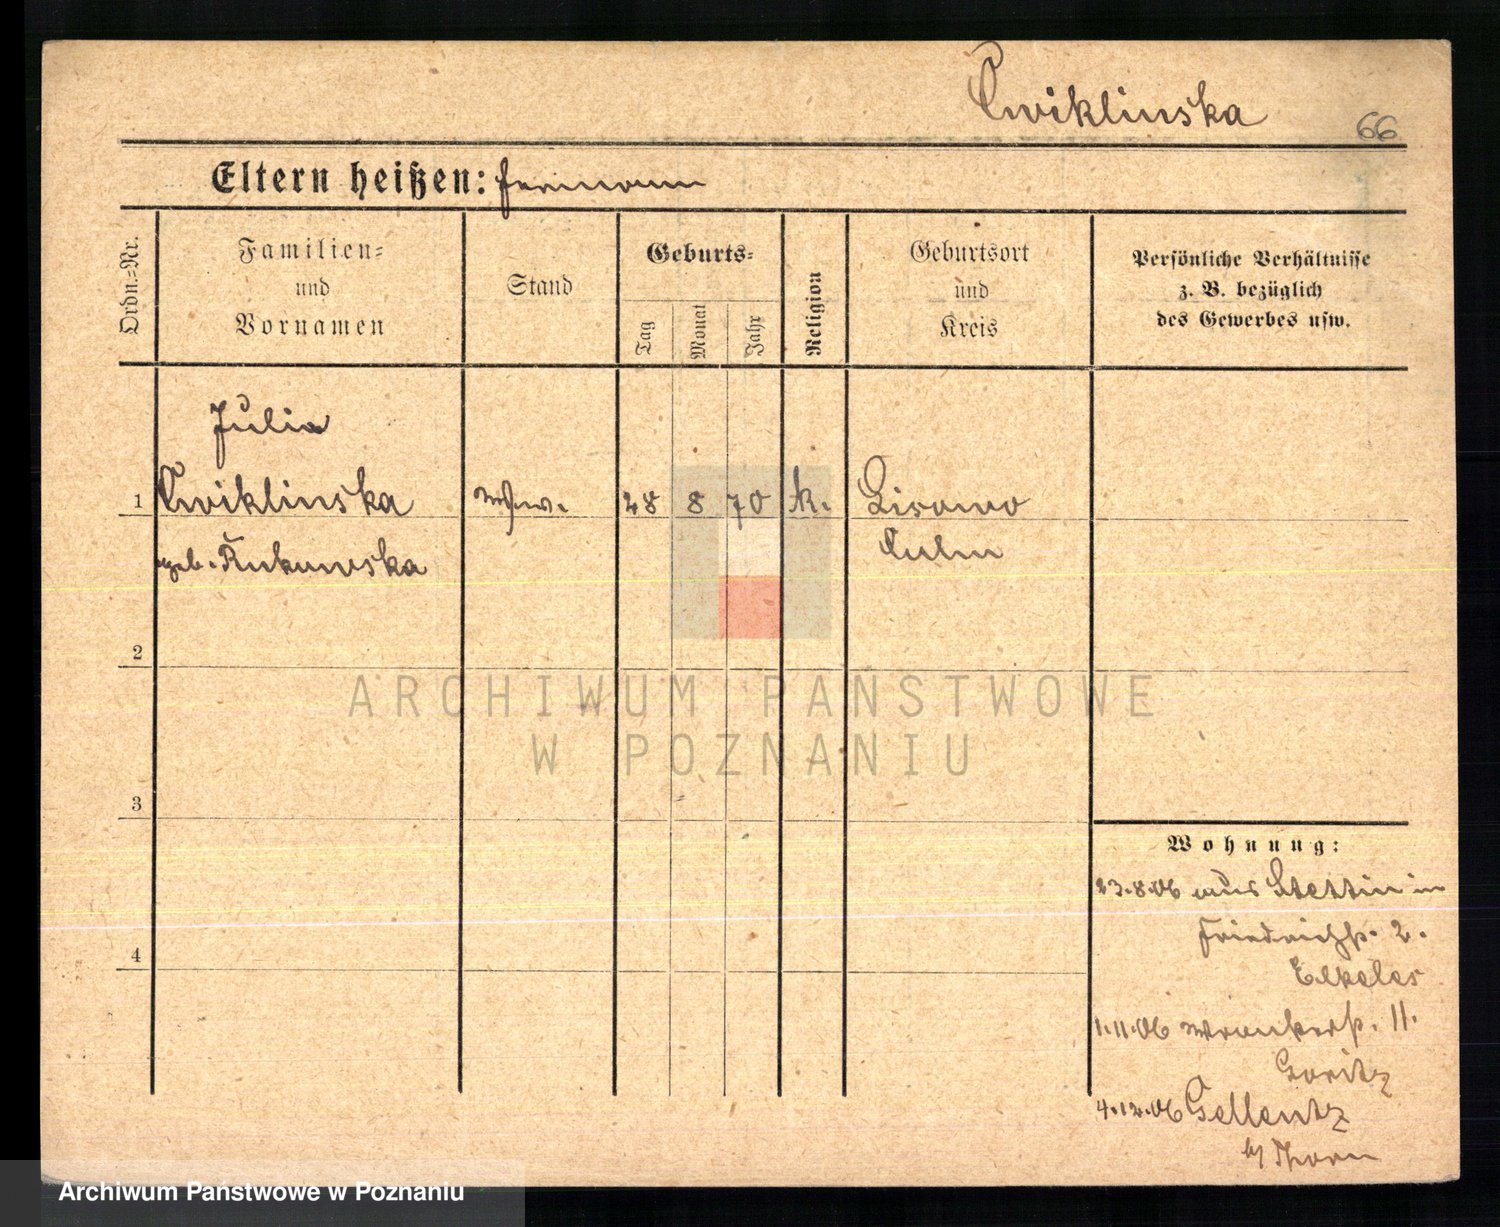 Cwiklinska
66
Eltern heißen: Hermann
Ordn.-Nr.
Familien-
und
Vornamen
Stand
Geburts-
Tag
Monat
Jahr
Religion
Geburtsort
und
Kreis
Persönliche Verhältnisse
z. B. bezüglich
des Gewerbes usw.
Julia
1 Cwiklinska 28 8 70 k.
geb.
Culm
2
3
4
ARCHIWUM PAŃSTWOWE
W POZNANIU
Wohnung:
23.8.06 aus Stettin in
Friedrichstr. 2.
Elkeles
1.11.06 Wronkerstr. 11.
Goritz
4.12.06 Gellentz
b/ Thorn
Archiwum Państwowe w Poznaniu